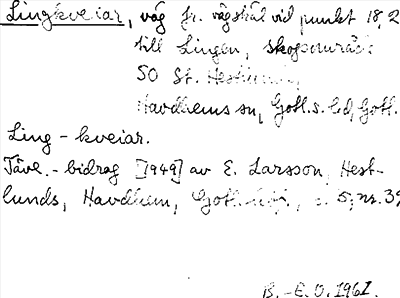 Lingkveiar, väg fr. vägskäl vid punkt 18,2
till Lingen, skogsområde
50 St.
Havdhems sn, Gotl. s. hd, Gotl.
Ling - kveiar.
Tävl. - bidrag [1949] av E. Larsson, Hest-
lunds, Havdhem, s. 5, nr. 39
B. - E. O. 1961.